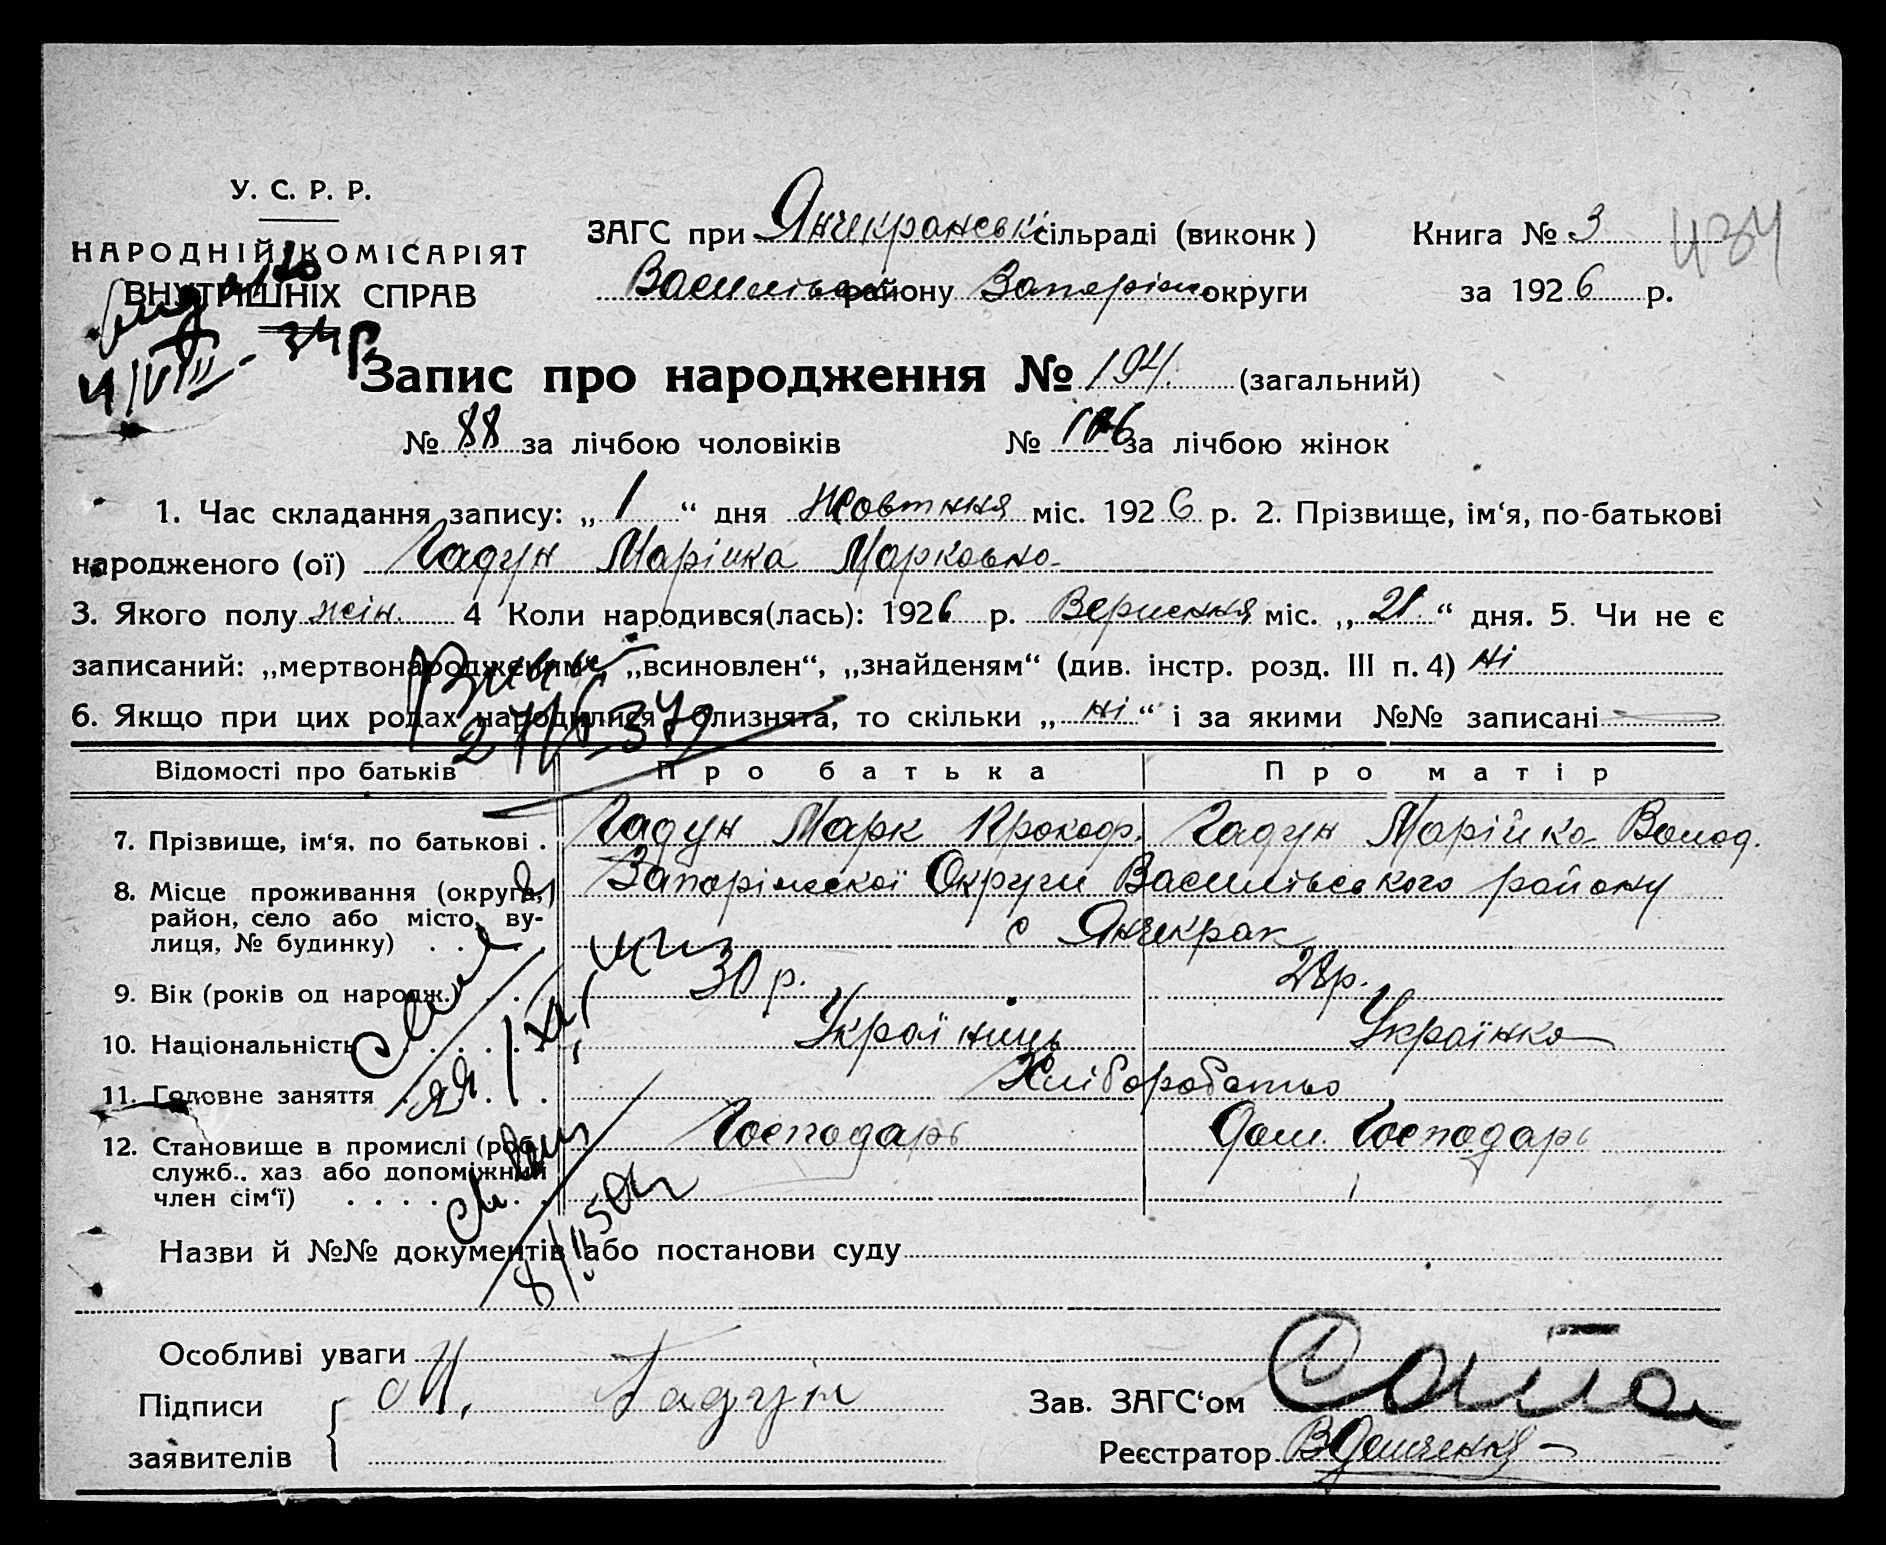 У. С. Р. Р.
НАРОДНІЙ КОМІСАРІЯТ
ВНУТРІШНІХ СПРАВ
ЗАГС при Янчекранськ сільраді (виконк)
Василівськ району Запоріж округи
Книга № 3
434
за 1926 р.
Видано
4/VIII - 34 р
Запис про народження № 194. (загальний)
№ 88 за лічбою чоловіків № 106 за лічбою жінок
1. Час складання запису: „ 1 “ дня Жовтння міс. 1926 р. 2. Прізвище, ім‘я, по-батькові
народженого (ої) Гадун Марійка Марковна
3. Якого полу жін. 4 Коли народився(лась): 1926 р. Вересння міс. „ 21 “ дня. 5. Чи не є
записаний: „мертвонародженим“ „всиновлен“, „знайденям“ (див. інстр. розд. III п. 4) ні
6. Якщо при цих родах народилися близнята, то скільки „ ні “ і за якими №№ записані
Відомості про батьків Про батька Про матір
7. Прізвище, ім‘я, по батькові . Гадун Марк Прокоф. Гадун Марійка Волод.
8. Місце проживання (округа, Запоріжської Округи Василівського району
район, село або місто, ву-
лиця, № будинку) . . с Янчекрак
9. Вік (років од народж.) 30 р. 28 р.
10. Національність Українець Українка
11. Головне заняття Хліборобство
12. Становище в промислі (роб., Господарь Дом. Господарь
служб., хаз або допоміжний
член сім‘ї)
Назви й №№ документів або постанови суду
Особливі уваги
Підписи М. Гадун
заявителів
Зав. ЗАГС‘ом
Реєстратор